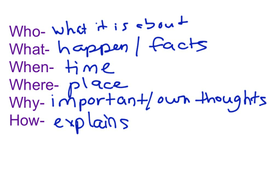 Who- what it is about
What- happen/facts
When- time
Where- place
Why- important/own thoughts
How- explains